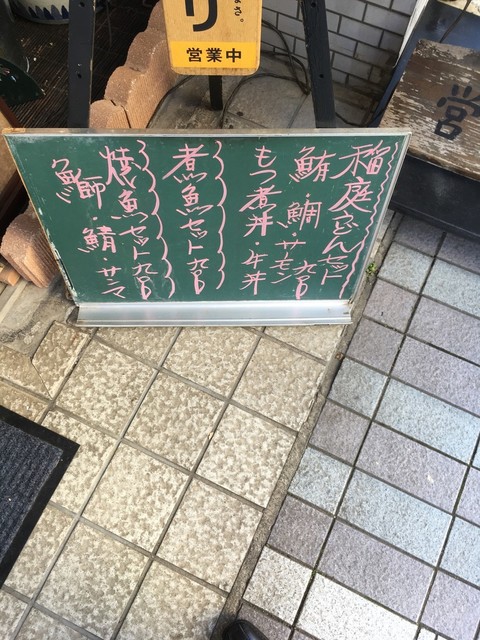 り
営業中
営
稲庭うどんセット
鮪・鯛・サーモン 九〇〇
もつ煮丼・牛丼
煮魚セット 九〇〇
焼魚セット 九〇〇
鰤・鯖・サンマ